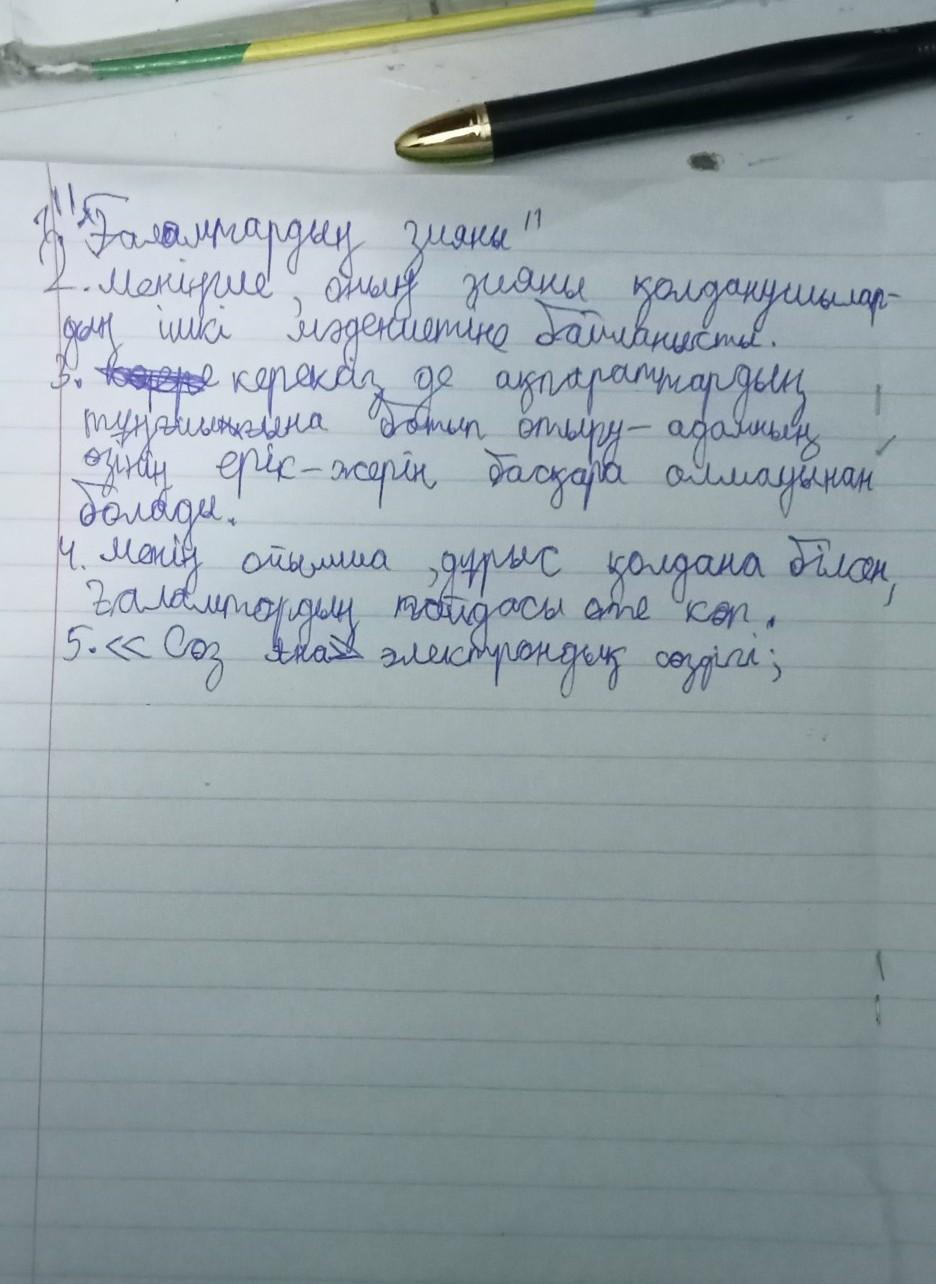 1. "Ғаламтардың зияны"
2. Меніңше, оның зияны қолданушылар-
дың ішкі мәдениетіне байланысты.
3. керекдіз де ақпараттардың
тұңғиығына батып отыру - адамның
өзінің ерік-жерін басқара алмауынан
болады.
4. Менің ойымша, дұрыс қолдана білсең,
ғаламтордың пайдасы өте көп.
5. << Сөз электрондық сөздігі;